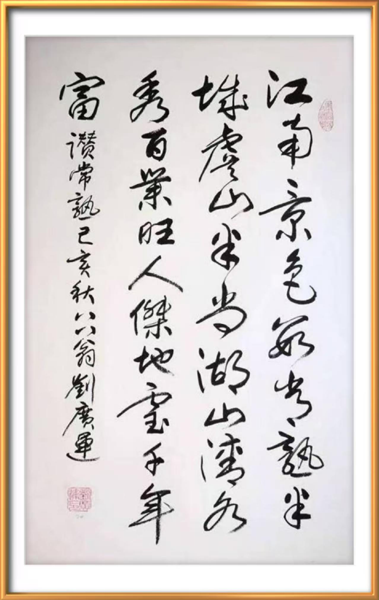 江南景色數常熟半
城虞山半尚湖山清水
秀百業旺人傑地靈千年
富 讚常熟己亥秋八八翁劉廣運